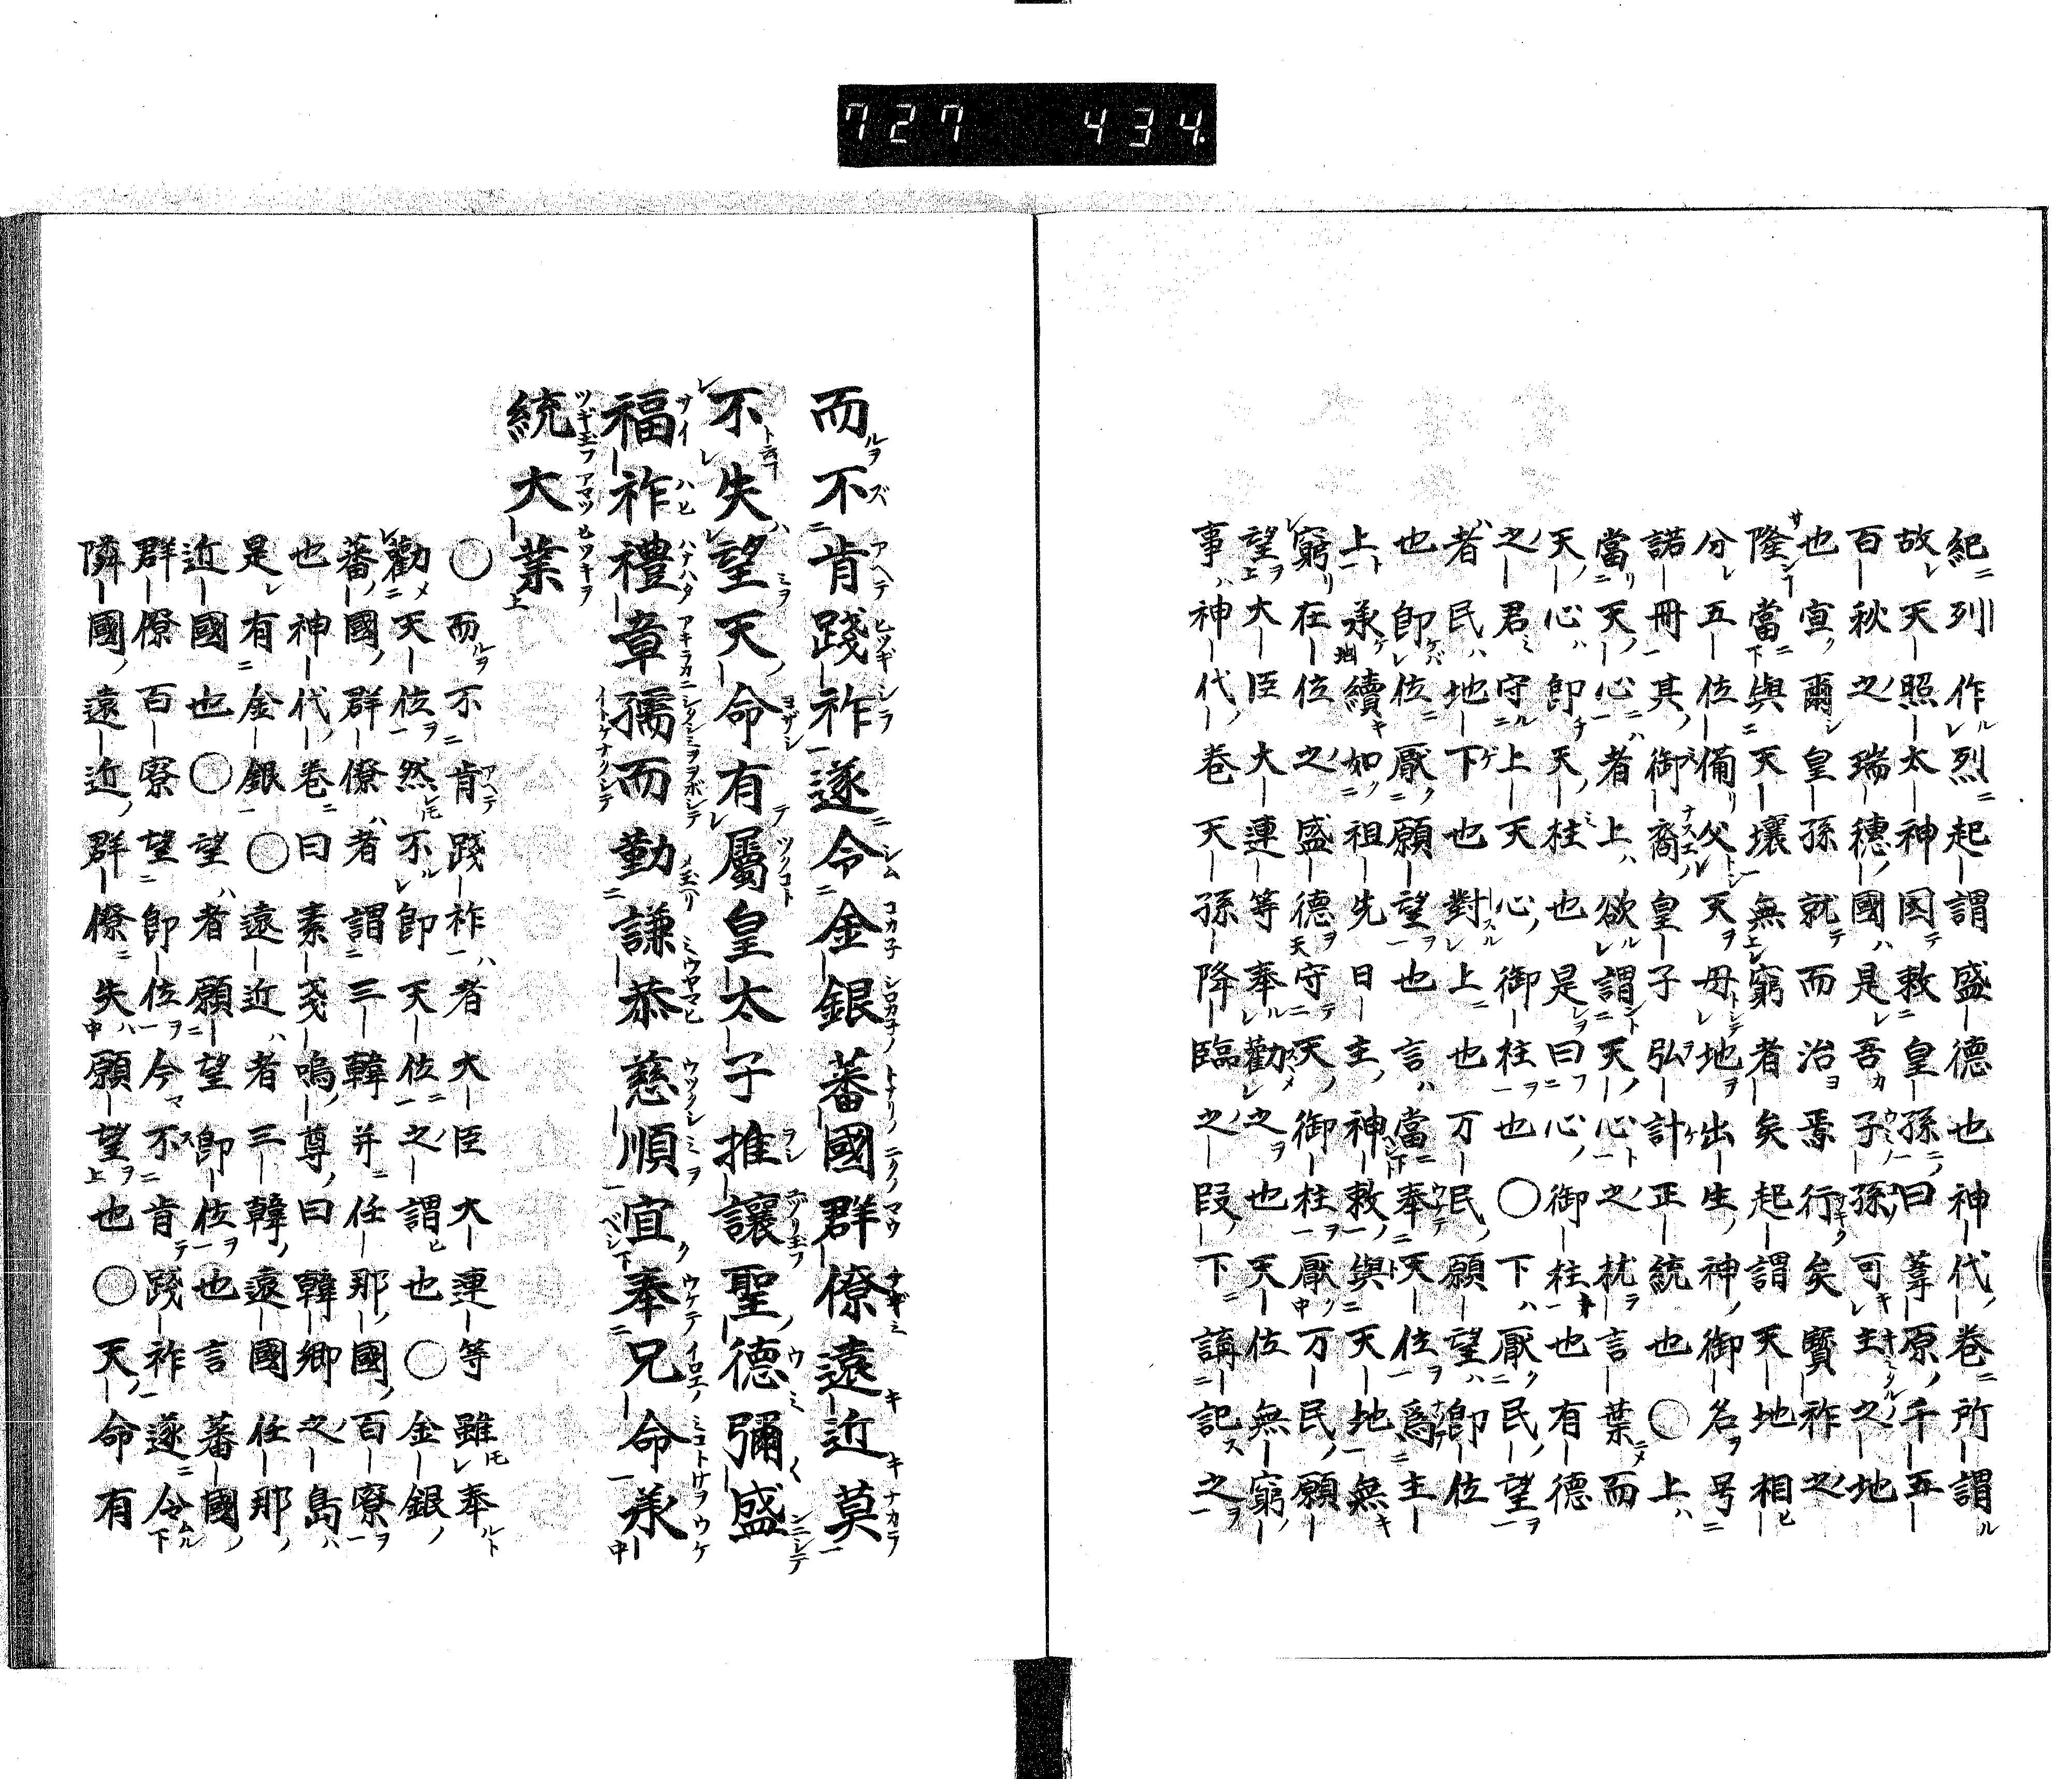 727 434.
紀列作烈起謂盛德也神代卷所謂
故天照太神因敕皇孫曰葦原千五
百秋之瑞穗國是吾子孫可主之地
也宜爾皇孫就而治焉行矣寶祚之
隆當與天壤無窮者矣起謂天地相
分五位備父天母地出生神御名号
諾冊其御裔皇子弘計正統也〇上
當天心者上欲謂天心之就言葉而
天心即天柱也是曰心御柱也有德
之君守上天心御柱也〇下厭民望
者民地下也對上也万民願望即位
也即位厭願望也言當奉天位爲主
上承續如祖先日主神敕與天地無
窮在位之盛德守天御柱厭万民願
望大臣大連等奉勸之也天位無窮
事神代卷天孫降臨之段下講記之
而不肯踐祚遂令金銀蕃國群僚遠近莫
不失望天命有屬皇太子推讓聖德彌盛
福祚禮章孺而勤謙恭慈順宜奉兄命承
統大業
〇而不肯踐祚者大臣大連等雖奉
勸天位然不即天位之謂也〇金銀
蕃國群僚者謂三韓并任那國百寮
也神代卷曰素戔嗚尊曰韓鄉之島
是有金銀〇遠近者三韓遠國任那
近國也〇望者願望即位也言蕃國
群僚百寮望即位今不肯踐祚遂令
隣國遠近群僚失願望也〇天命有